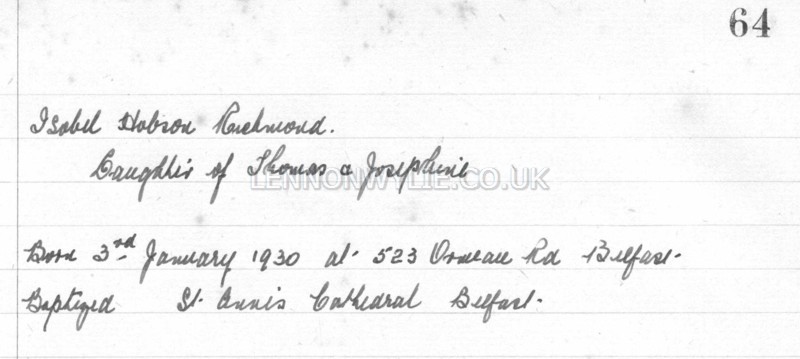 64
Isobel Hobson Richmond.
Daughter of Thomas & Josephine
LENNONWYLIE.CO.UK
Born 3rd January 1930 at 523 Ormeau Rd Belfast.
Baptized St. Annes Cathedral Belfast.